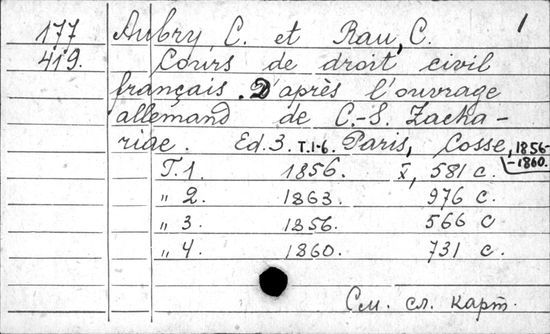 177 Aubry C. et Rau, C. 1
419. Cours de droit civil
français. D'après l'ouvrage
allemand de C.-S. Zacha-
riae. Ed. 3. T.1-6. Paris, Cosse, 1856-
-1860.
T. 1. 1856. X, 581 c.
„ 2. 1863. 976 c.
„ 3. 1856. 566 c
„ 4. 1860. 731 c.
См. сл. карт.